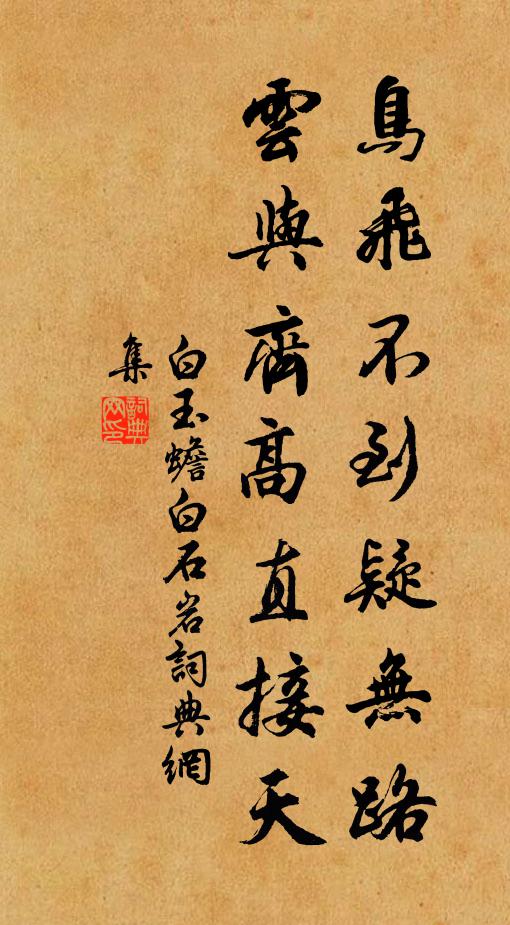 鳥飛不到疑無路
雲與齊高直接天
白玉蟾白石岩詞典網
集
詞典網印